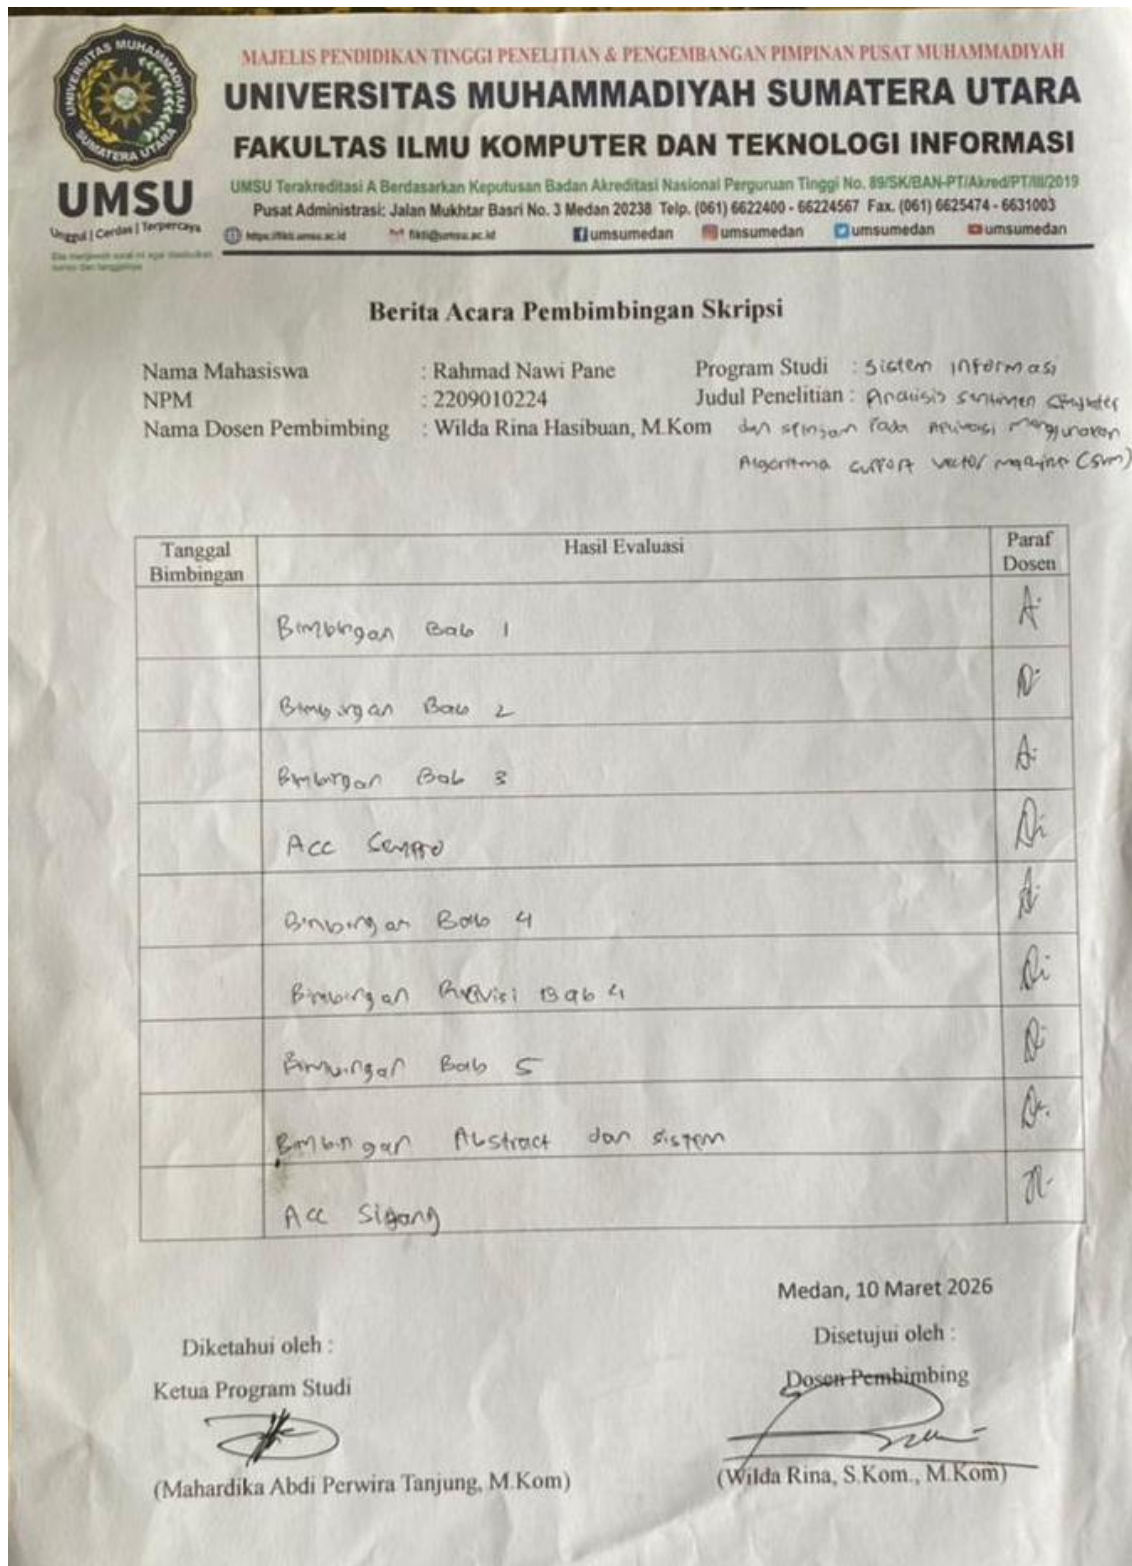 UNIVERSITAS MUHAMMADIYAH
SUMATERA UTARA
UMSU
Unggul | Cerdas | Terpercaya
MAJELIS PENDIDIKAN TINGGI PENELITIAN & PENGEMBANGAN PIMPINAN PUSAT MUHAMMADIYAH
UNIVERSITAS MUHAMMADIYAH SUMATERA UTARA
FAKULTAS ILMU KOMPUTER DAN TEKNOLOGI INFORMASI
UMSU Terakreditasi A Berdasarkan Keputusan Badan Akreditasi Nasional Perguruan Tinggi No. 89/SK/BAN-PT/Akred/PT/III/2019
Pusat Administrasi: Jalan Mukhtar Basri No. 3 Medan 20238 Telp. (061) 6622400 - 66224567 Fax. (061) 6625474 - 6631003
https://fikti.umsu.ac.id fikti@umsu.ac.id umsumedan umsumedan umsumedan umsumedan
Berita Acara Pembimbingan Skripsi
Nama Mahasiswa : Rahmad Nawi Pane Program Studi : Sistem informasi
NPM : 2209010224 Judul Penelitian : Analisis sentimen
Nama Dosen Pembimbing : Wilda Rina Hasibuan, M.Kom dan Pada Aplikasi menggunakan
Algoritma support vector machine (svm)
Tanggal Bimbingan Hasil Evaluasi Paraf Dosen
Bimbingan Bab 1
Bimbingan Bab 2
Bimbingan Bab 3
Acc Sempro
Bimbingan Bab 4
Bimbingan Revisi Bab 4
Bimbingan Bab 5
Bimbingan Abstract dan sistem
Acc Sidang
Medan, 10 Maret 2026
Diketahui oleh : Disetujui oleh :
Ketua Program Studi Dosen Pembimbing
(Mahardika Abdi Perwira Tanjung, M.Kom) (Wilda Rina, S.Kom., M.Kom)